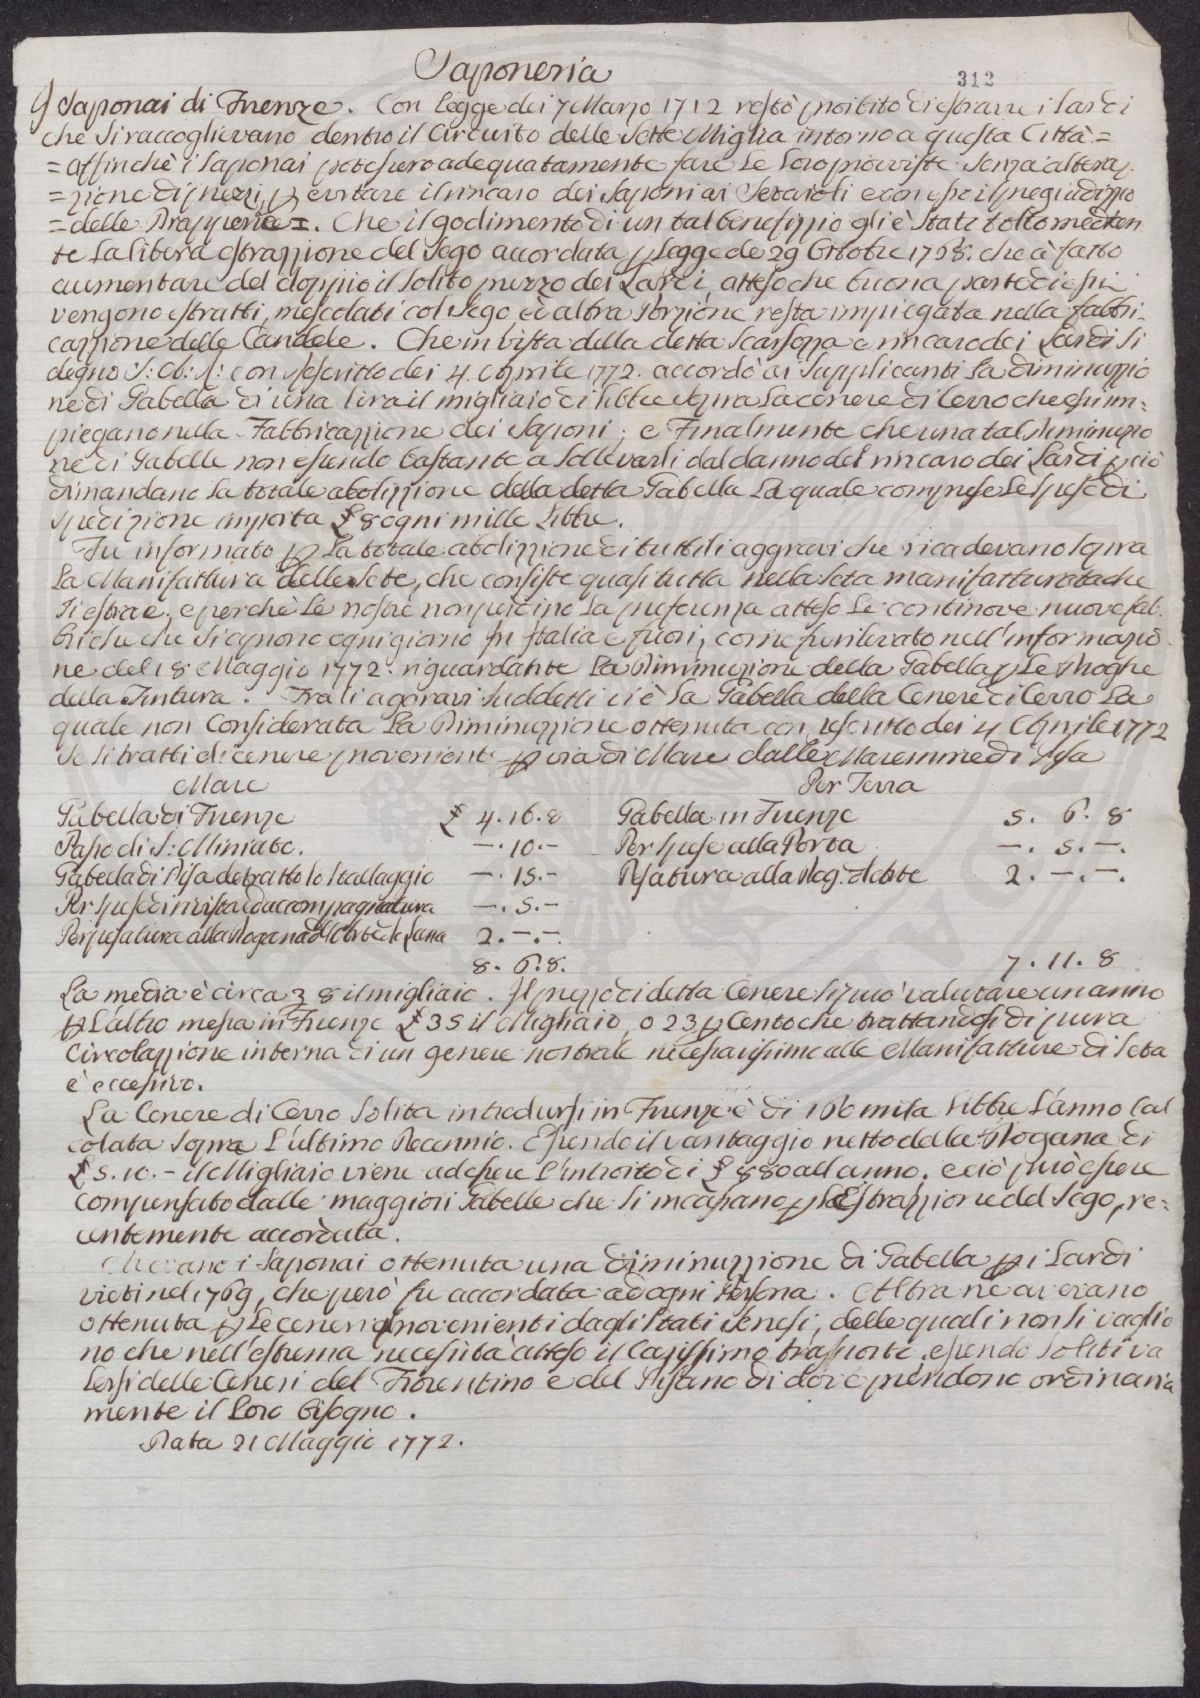 Saponeria
312
I Saponai di Firenze. Con Legge dei 7 Marzo 1712 restò proibito di estrarre i Lardi
che si raccoglievano dentro il Circuito delle Sette Miglia intorno a questa Città =
= affinchè i Saponai potessero adequatamente fare le loro provviste senza altera,
= zione di prezzi, p evitare il rincaro dei Saponi ai Setaioli e con esso il pregiudizzio
= delle Drapperie =. Che il godimento di un tal benefizzio gli è stato tolto median
te la libera estrazzione del Sego accordata p Legge de 29 Ottobre 1768. che à fatto
aumentare del doppio il solito prezzo dei Lardi, atteso che buona parte di essi
vengono estratti, mescolati col Sego ed altra Porzione resta impiegata nella fabbri-
cazzione delle Candele. Che in vista della detta Scarsezza e rincaro dei Lardi si
degnò S: A: R: con Rescritto dei 4. Aprile 1772. accordò ai Supplicanti la diminuzzio
ne di Gabella di una lira il migliaio di libbre sopra la cenere di Cerro che s'im=
piegano nella Fabbricazzione dei Saponi; e Finalmente che una tal diminuzio
ne di Gabelle non essendo bastante a sollevarli dal danno del rincaro dei Lardi p ciò
dimandano la totale abolizzione della detta Gabella la quale comprese le spese di
spedizione importa £ 8 ogni mille libbre.
Fu informato p la totale abolizzione di tutti li aggravi che ricadevano sopra
la Manifattura delle Sete, che consiste quasi tutta nella Seta manifatturata che
si estrae, e perchè le nostre non perdino la preferenza atteso le continove nuove fab-
briche che si aprono ogni giorno in Italia e fuori, come fu rilevato nell'informazio
ne del 18 Maggio 1772. riguardante la Diminuzione della Gabella p le Droghe
della Tintura. Fra li aggravi suddetti ci è la Gabella della Cenere di Cerro la
quale non Considerata la Diminuzzione ottenuta con rescritto dei 4 Aprile 1772
se si tratti di cenere proveniente p via di Mare dalle Maremme di Pisa
Mare
Per Terra
Gabella di Firenze £ 4. 16. 8 Gabella in Firenze 5. 6. 8
Passo di S: Miniato. —. 10. — Per spese alla Porta —. 5. —.
Gabella di Pisa detratto lo Stallaggio —. 15. — Pesatura alla Dog.a Debte 2. —. —.
Per spese di rivista ed accompagnatura —. 5. —
Per pesatura alla Dogana 2. —. —.
8. 6. 8. 7. 11. 8
La media è circa £ 8 il migliaio. Il prezzo di detta Cenere si può valutare un anno
p l'altro messa in Firenze £ 35 il Migliaio, o 23 p Cento che trattandosi di pura
Circolazzione interna di un genere nostrale necessarissimo alle Manifatture di Seta
è eccessivo.
La Cenere di Cerro solita introdursi in Firenze è di 160 mila libbre l'anno cal
colata sopra l'ultimo Decennio. Essendo il vantaggio netto della Dogana di
£ 5. 10. — il Migliaio viene ad essere l'introito di £ 880 all'anno. e ciò può essere
compensato dalle maggiori Gabelle che si incassano p la Estrazzione del Sego, re=
centemente accordata.
Avevano i Saponai ottenuta una diminuzzione di Gabella p i Lardi
vieti nel 1769, che però fu accordata ad ogni Persona. Altra ne avevano
ottenuta p le ceneri provenienti dagli Stati Senesi, delle quali non si vaglio
no che nell'estrema necessità atteso il carissimo trasporto, essendo soliti va
lersi delle Ceneri del Fiorentino e del Pisano di dove prendono ordinaria
mente il loro bisogno.
Data 21 Maggio 1772.